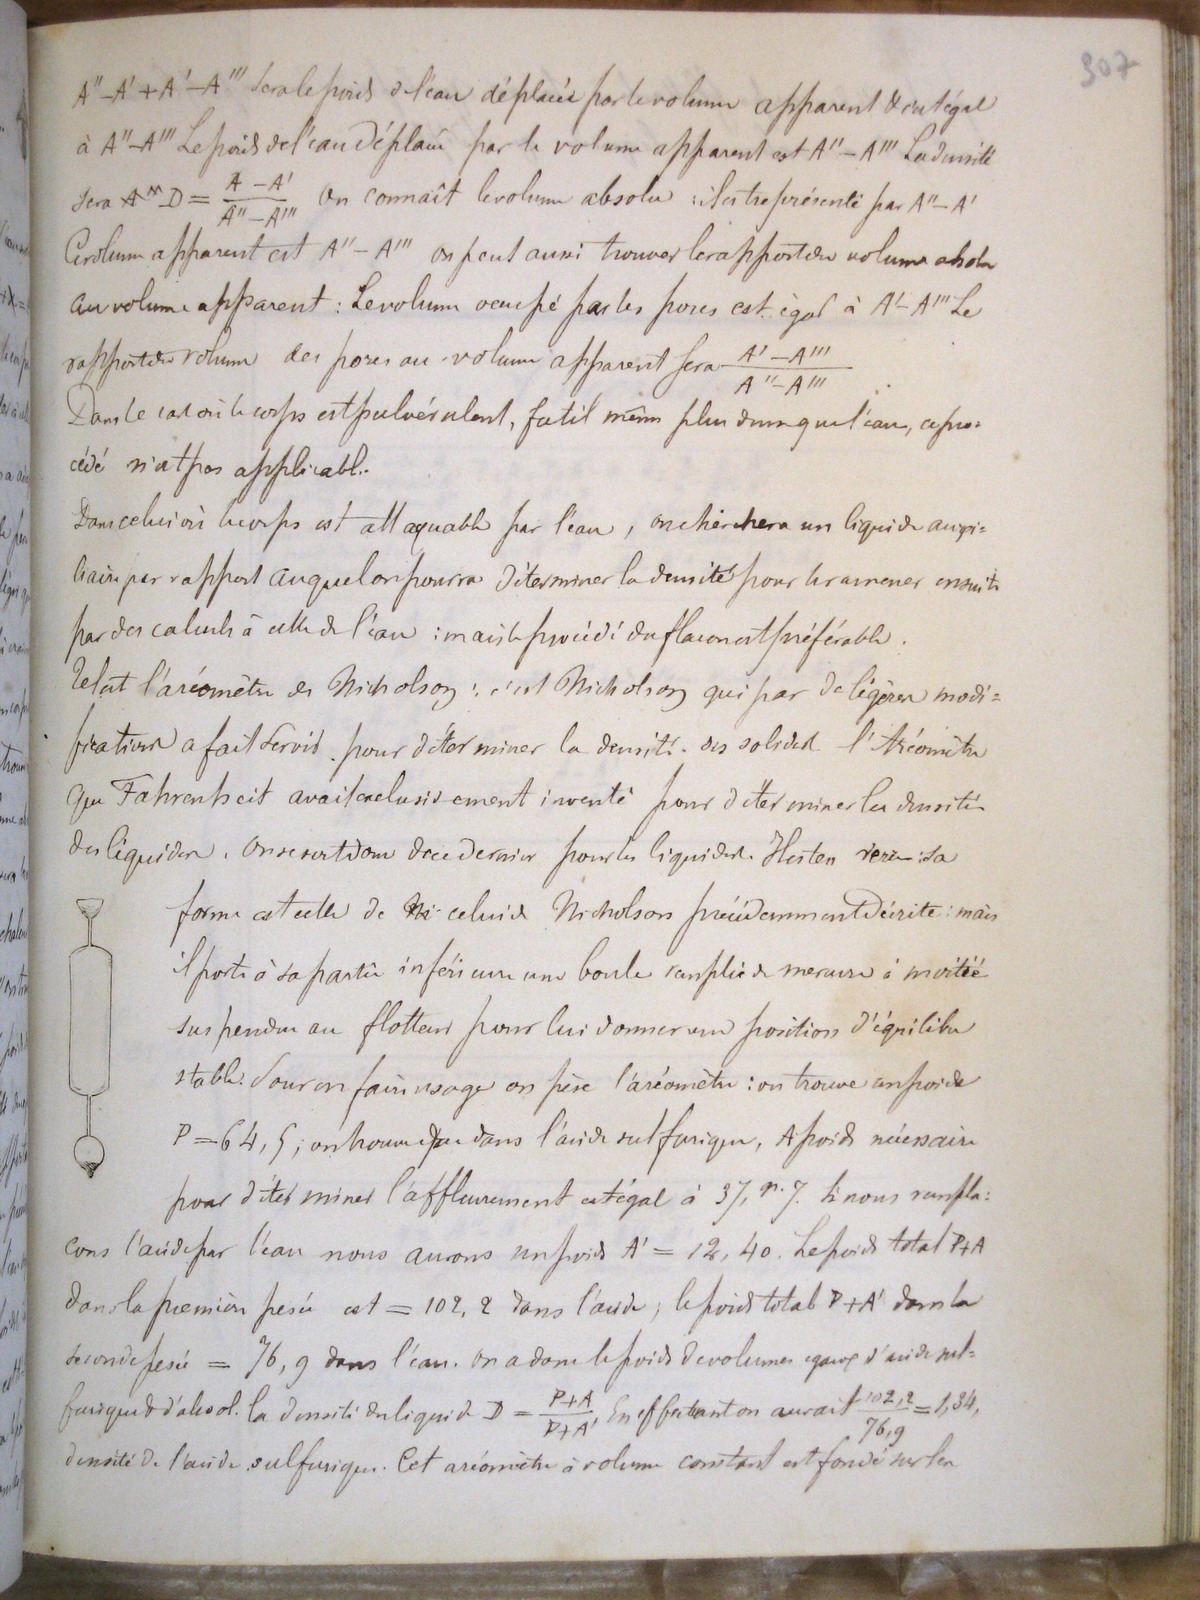 307
A''-A'+A'-A''' sera le poids de l'eau déplacée par le volume apparent & est égal
à A''-A''' Le poids de l'eau déplacée par le volume apparent est A''-A''' La densité
sera D = A-A' / A''-A''' On connaît le volume absolu : il est représenté par A''-A'
Le volume apparent est A''-A''' on peut aussi trouver le rapport du volume absolu
au volume apparent : Le volume occupé par les pores est égal à A'-A''' Le
rapport du volume des pores au volume apparent sera A'-A''' / A''-A'''
Dans le cas où le corps est pulvérulent, fut il même plus dense que l'eau, ce pro=
cédé n'est pas applicable.
Dans celui où le corps est attaquable par l'eau, on cherchera un liquide auxi=
liaire par rapport auquel on pourra déterminer la densité pour la ramener ensuite
par des calculs à celle de l'eau : mais le procédé du flacon est préférable.
Tel est l'aréomètre de Nicholson : c'est Nicholson qui par de légères modi=
fications a fait servir pour déterminer la densité des solides l'Aréomètre
que Fahrenheit avait exclusivement inventé pour déterminer les densités
des liquides. On se sert donc de ce dernier pour les liquides. Il est en verre : sa
forme est celle de celui de Nicholson précédemment décrite : mais
il porte à sa partie inférieure une boule remplie de mercure à moitié
suspendue au flotteur pour lui donner une position d'équilibre
stable. Pour en faire usage on pèse l'aréomètre : on trouve un poids
P = 64,5 ; on trouve que dans l'acide sulfurique, A poids nécessaire
pour déterminer l'affleurement est égal à 37, gr. 7. Si nous rempla=
cons l'acide par l'eau nous aurons un poids A' = 12,40. Le poids total P+A
dans la première pesée est = 102,2 dans l'acide ; le poids total P+A' dans la
seconde pesée = 76,9 dans l'eau. On a donc le poids de volumes égaux d'acide sul=
furique & d'alcool. la densité du liquide D = P+A / P+A' En effectuant on aurait 102,2 / 76,9 = 1,34,
densité de l'acide sulfurique. Cet aréomètre à volume constant est fondé sur les